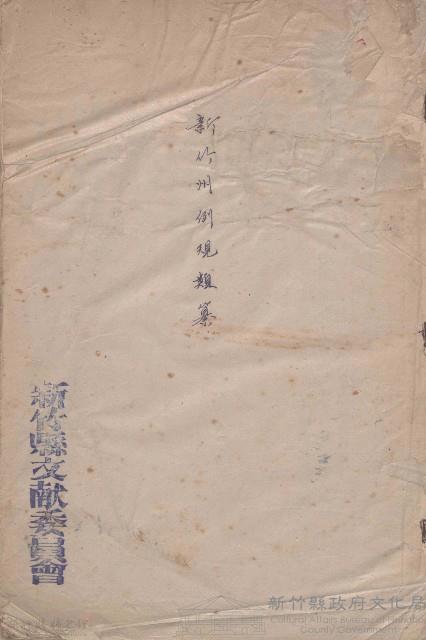 新竹州例規類纂
新竹縣文献委員會
新竹縣政府文化局
Cultural Affairs Bureau of Hsinchu
County Government